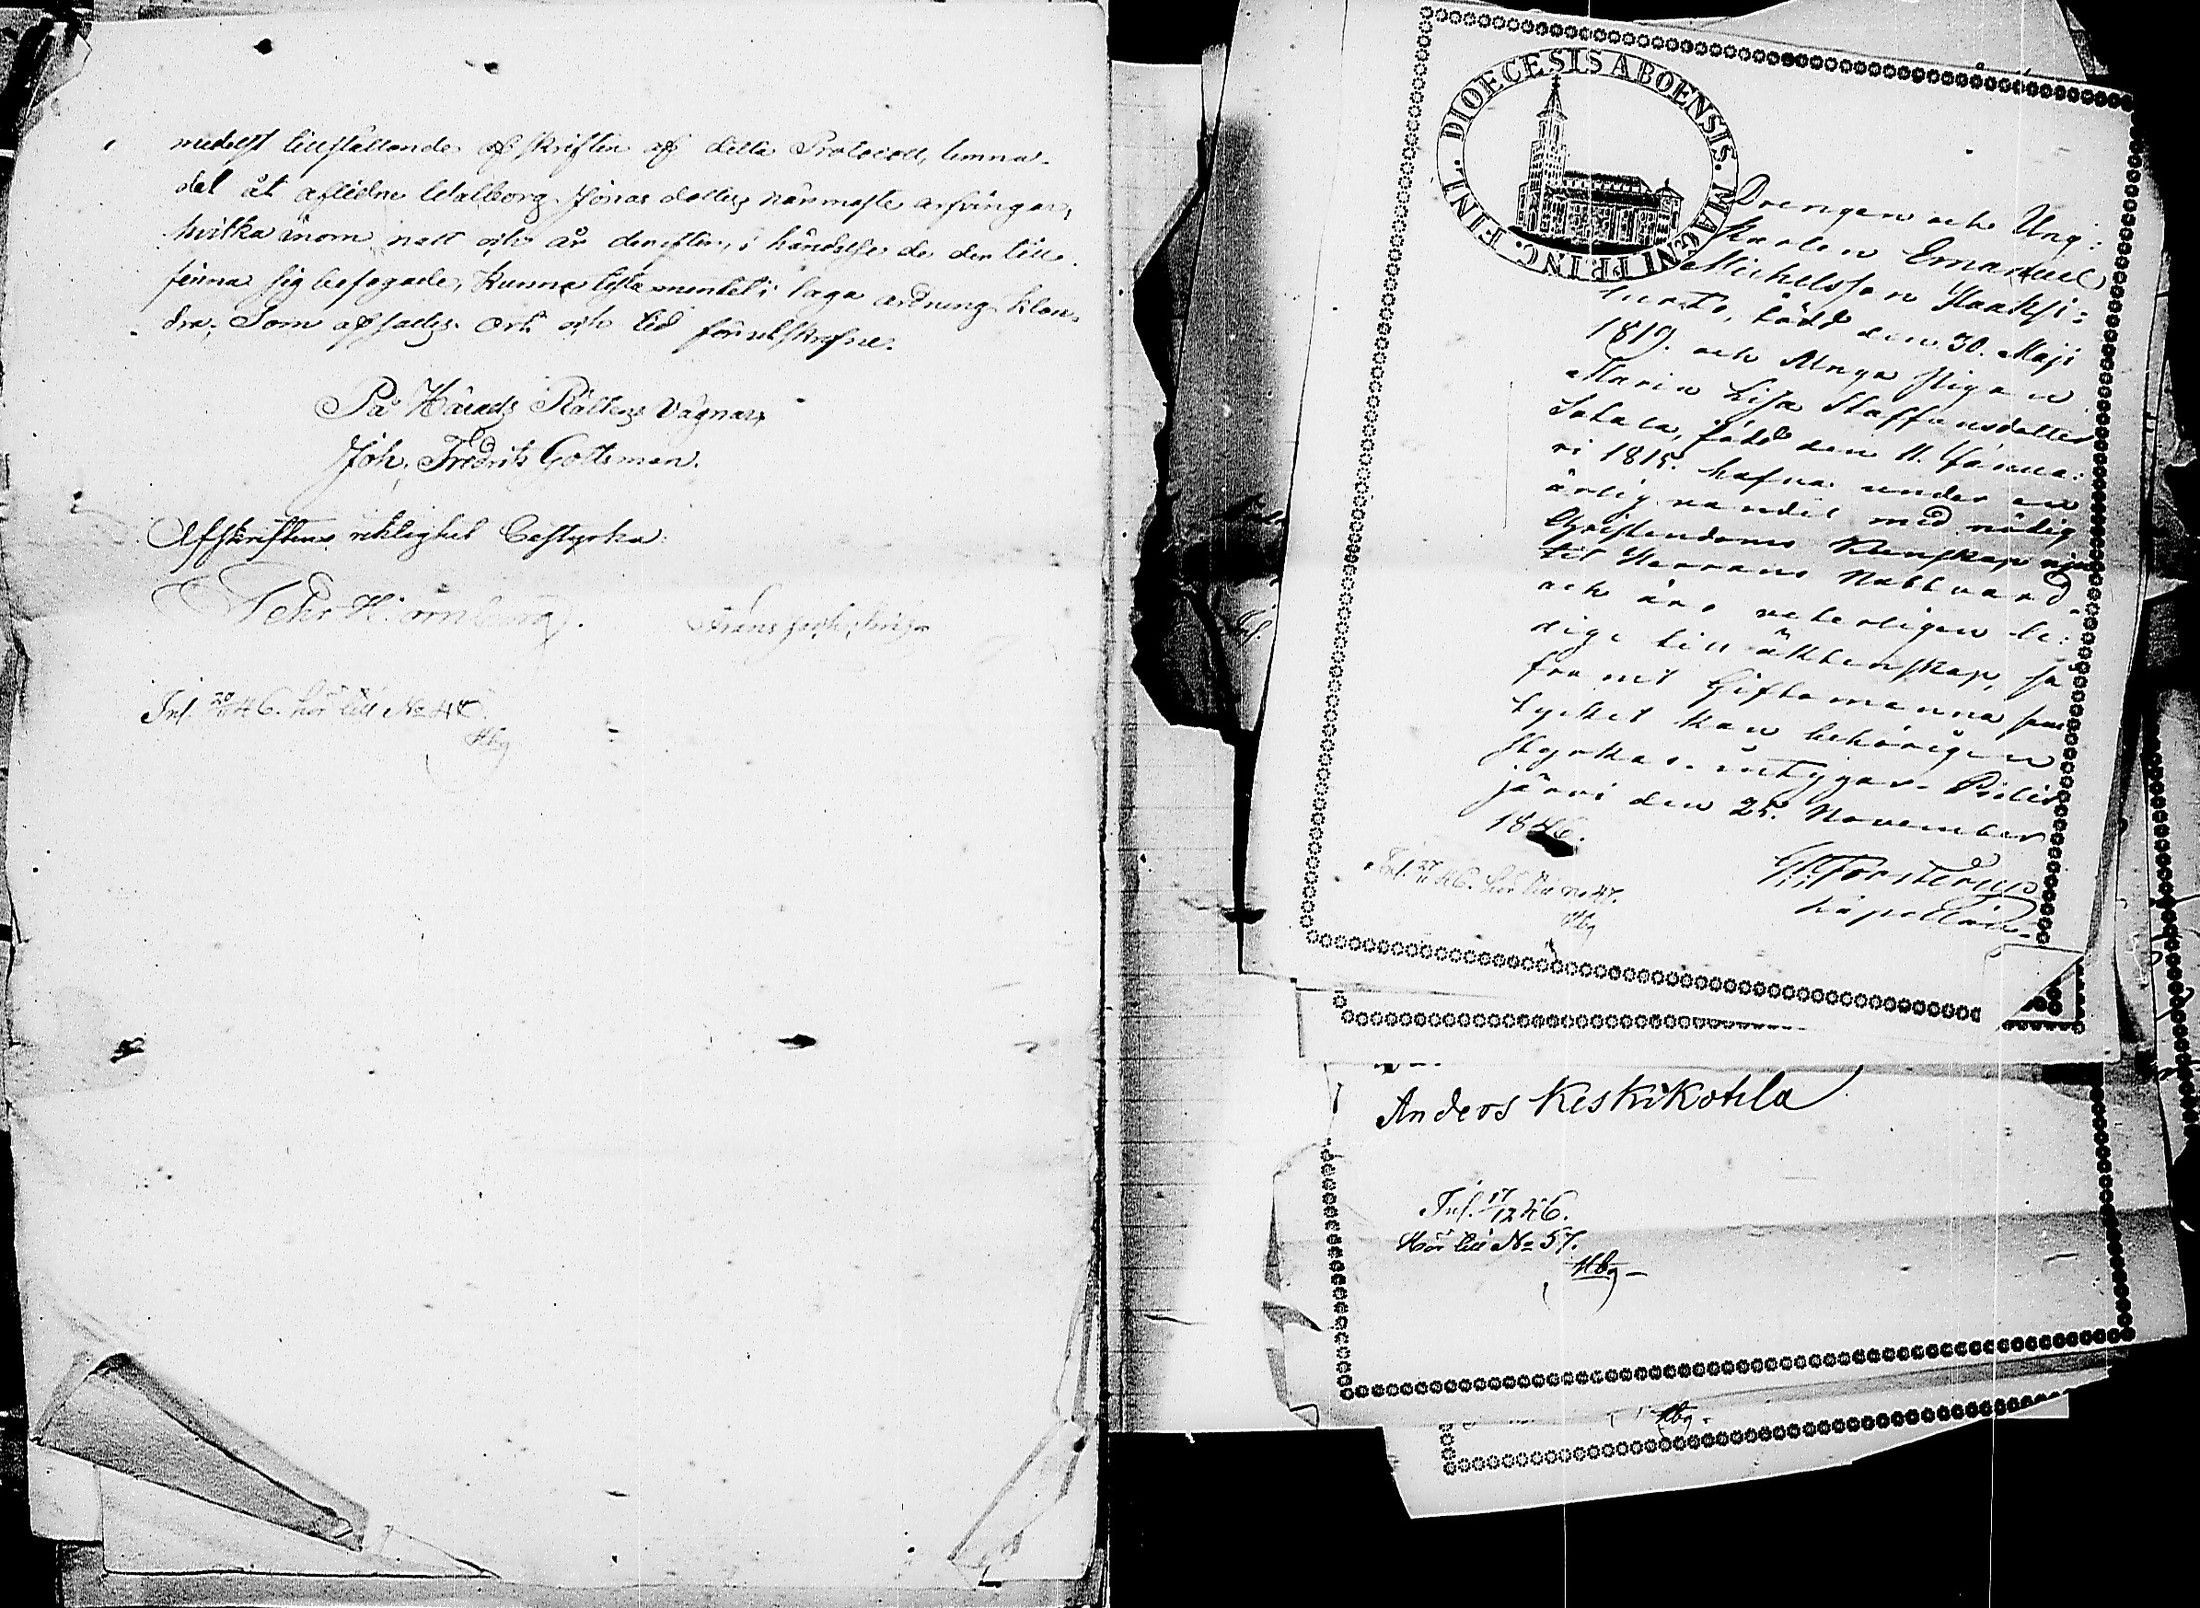 medelst tillställande af skriften af detta Protocoll, lemna-
det åt aflidne Walborg Jönas dotters närmaste arfvingar,
hvilka inom natt och år derefter, i händelse de der till
finna sig befogade, kunna testamentet i laga ordning klan-
dra; Som afsades Ort och tid förutskrefne.
På Härads Rättens vägnar,
Joh. Fredrik Gottsman.
Afskriftens riktighet bestyrka:
Pehr Hjornberg.
Frans
Inl. 20/11 46. hör till No 45.
Hbg
DIOECESIS ABOENSIS. MAGNI PRINC. FINL.
Drengen och Ung-
karlen Emanuel
Michelsson Haaksi-
luoto, född den 30. Maji
1819. och Unga pigan
Maria Lisa Staffansdotter
Sahala, född den 11. Janua-
ri 1815. hafva under en
ärlig vandel med nödig
Christendoms kunskap njutit
till Herrans Nattvard
och äro veterligen le-
dige till äktenskap, så
framt Giftomanna sam-
tycket kan behörigen
styrkas. intygar. Pielis-
järvi den 25. November
1846.
Forsterus
Kapellan.
Inl. 27/11 46. hör till No 47.
Hbg
Anders Keskikotila
Inl. 17/12 46.
Hör till No 57.
Hbg
Hbg